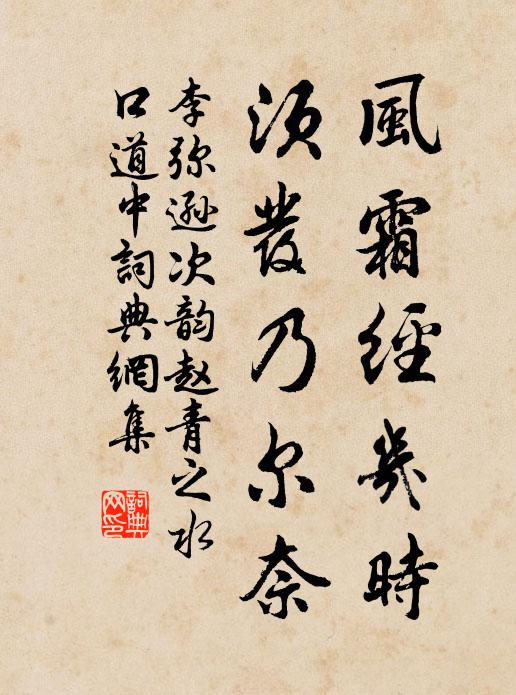 風霜經幾時
須發乃尔奈
李弥遜次韵趙青之水
口道中詞典網集
詞典網印